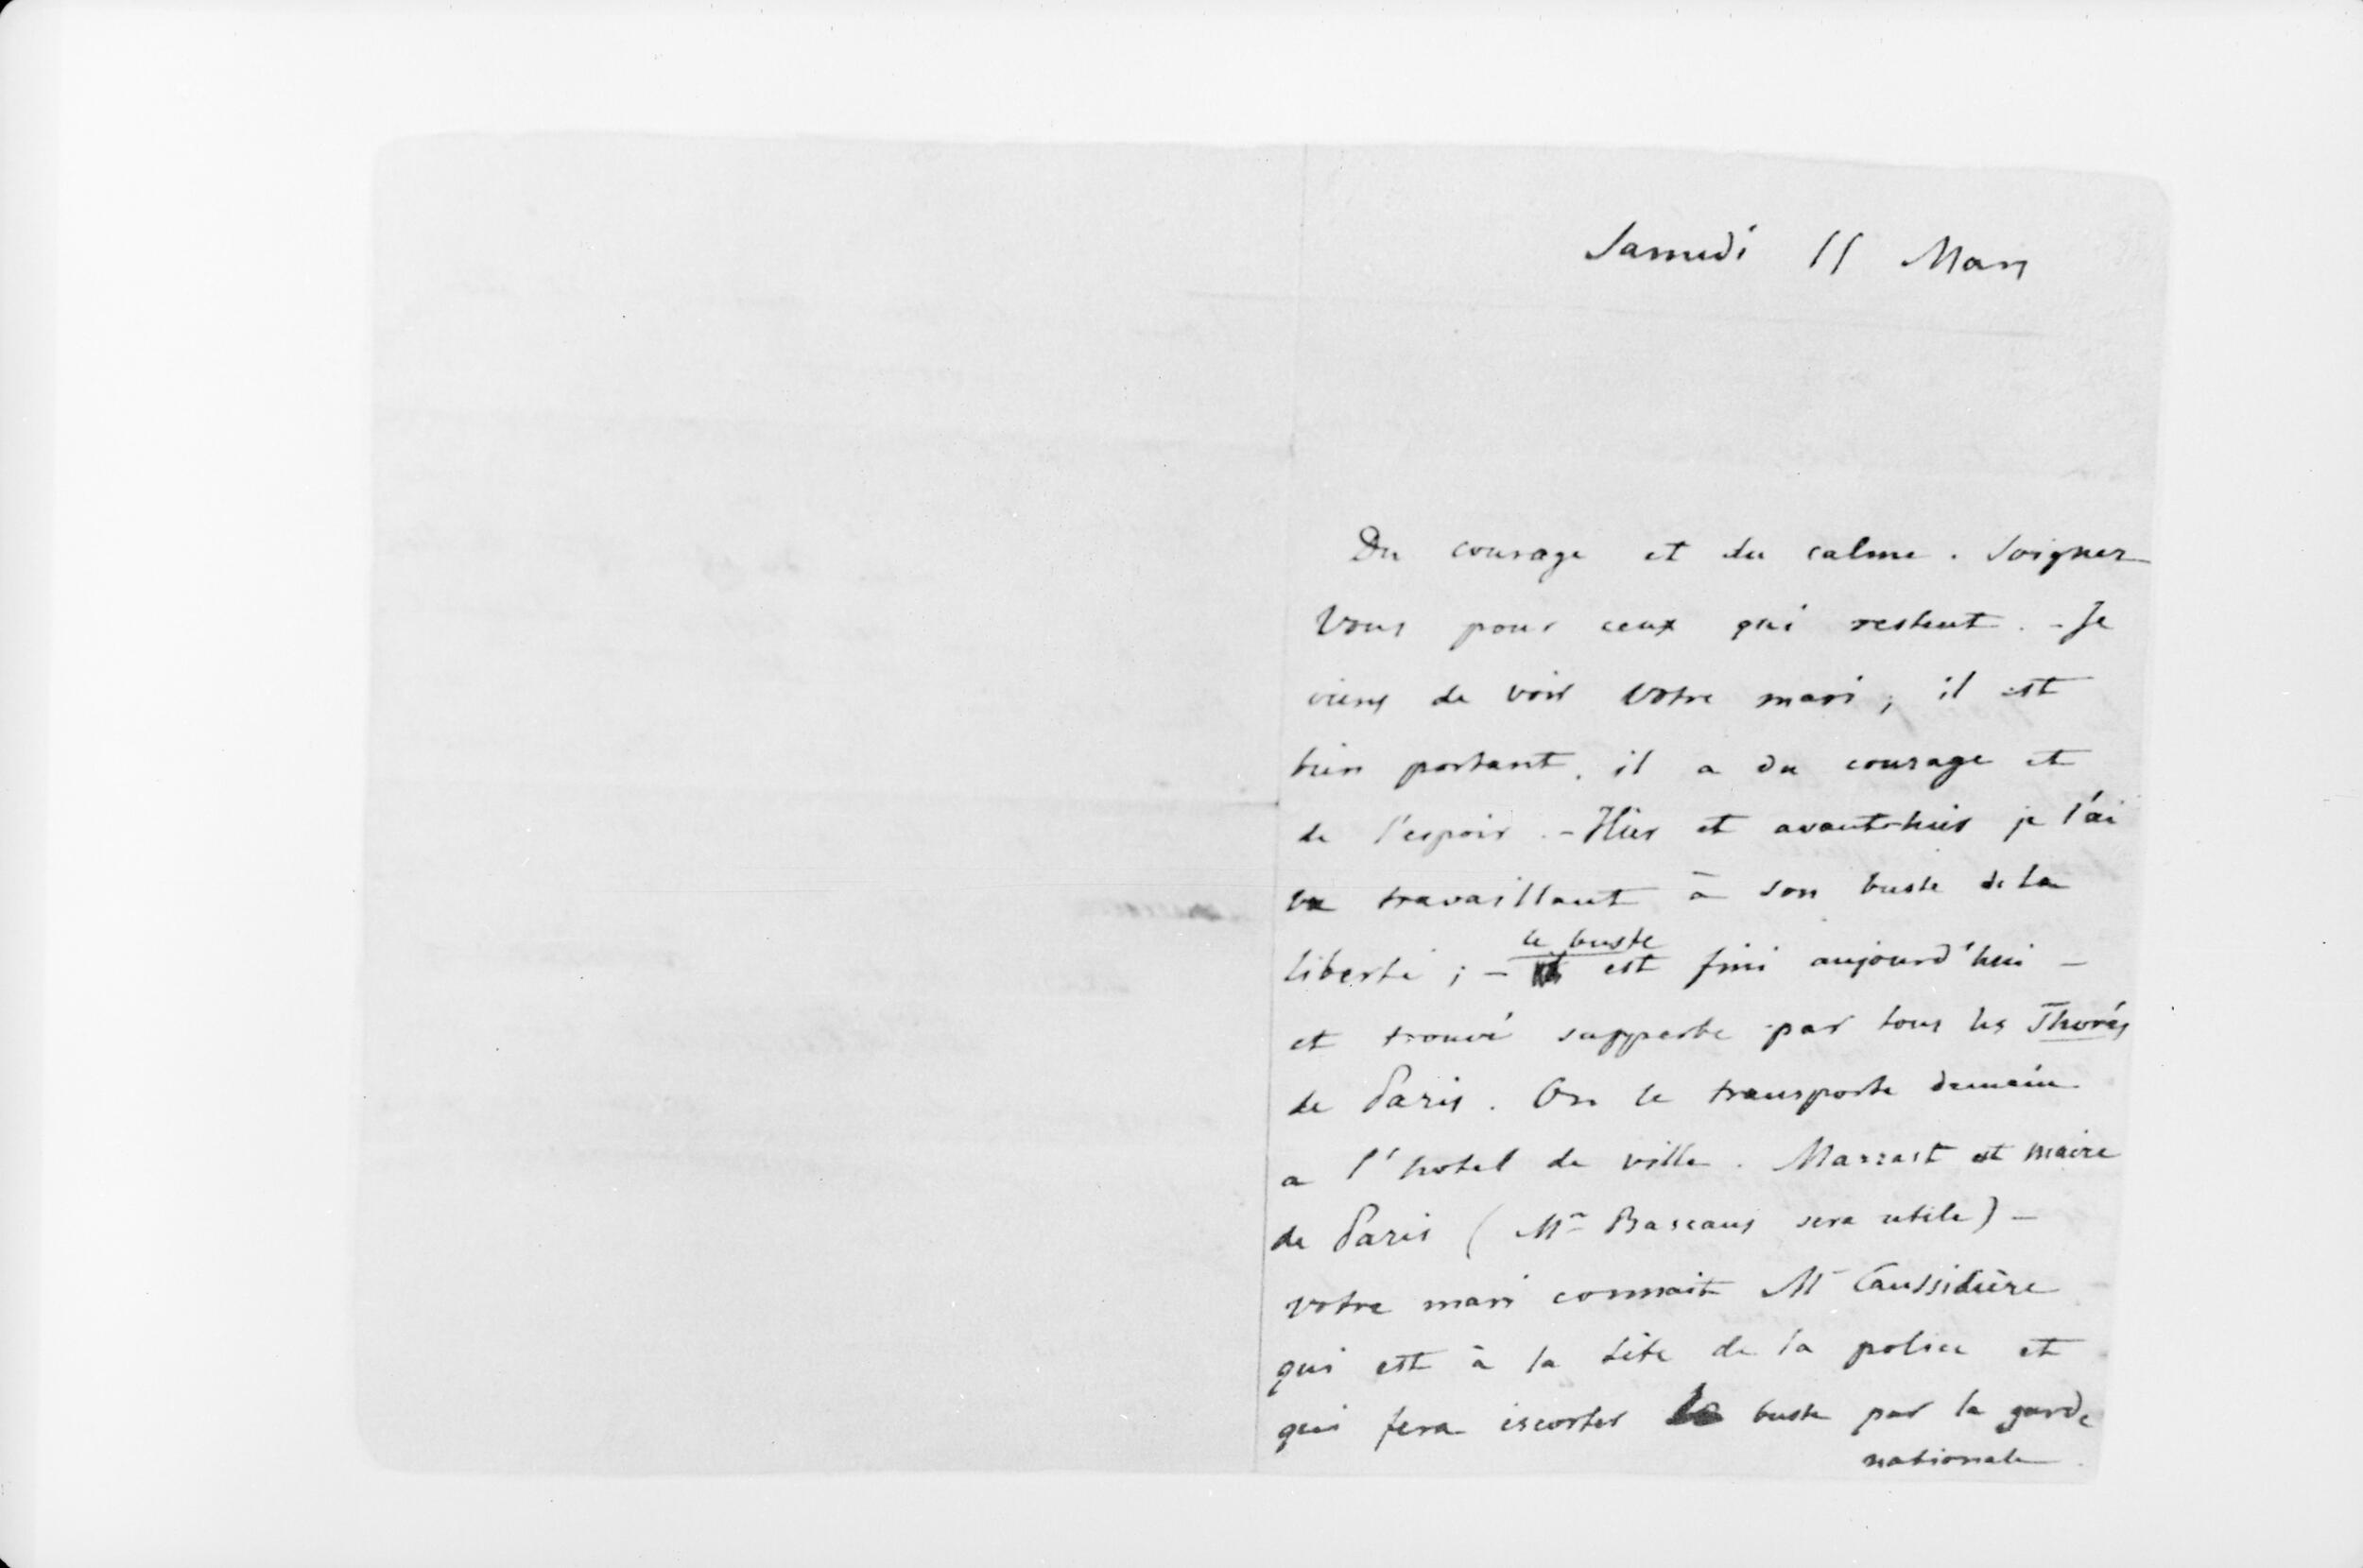 Samedi 11 Mars
Du courage et du calme. Soignez
vous pour ceux qui restent. - Je
viens de voir votre mari, il est
bien portant. il a du courage et
de l'espoir. - Hier et avant-hier je l'ai
vu travaillant à son buste de la
le buste
liberté ; - est fini aujourd'hui -
et trouvé supperbe par tous les Thorés
de Paris. On le transporte demain
a l'hotel de ville. Marrast est maire
de Paris ( Bascans sera utile) -
votre mari connait Mr Caussidière
qui est à la tête de la police et
qui fera escorter le buste par la garde
nationale.